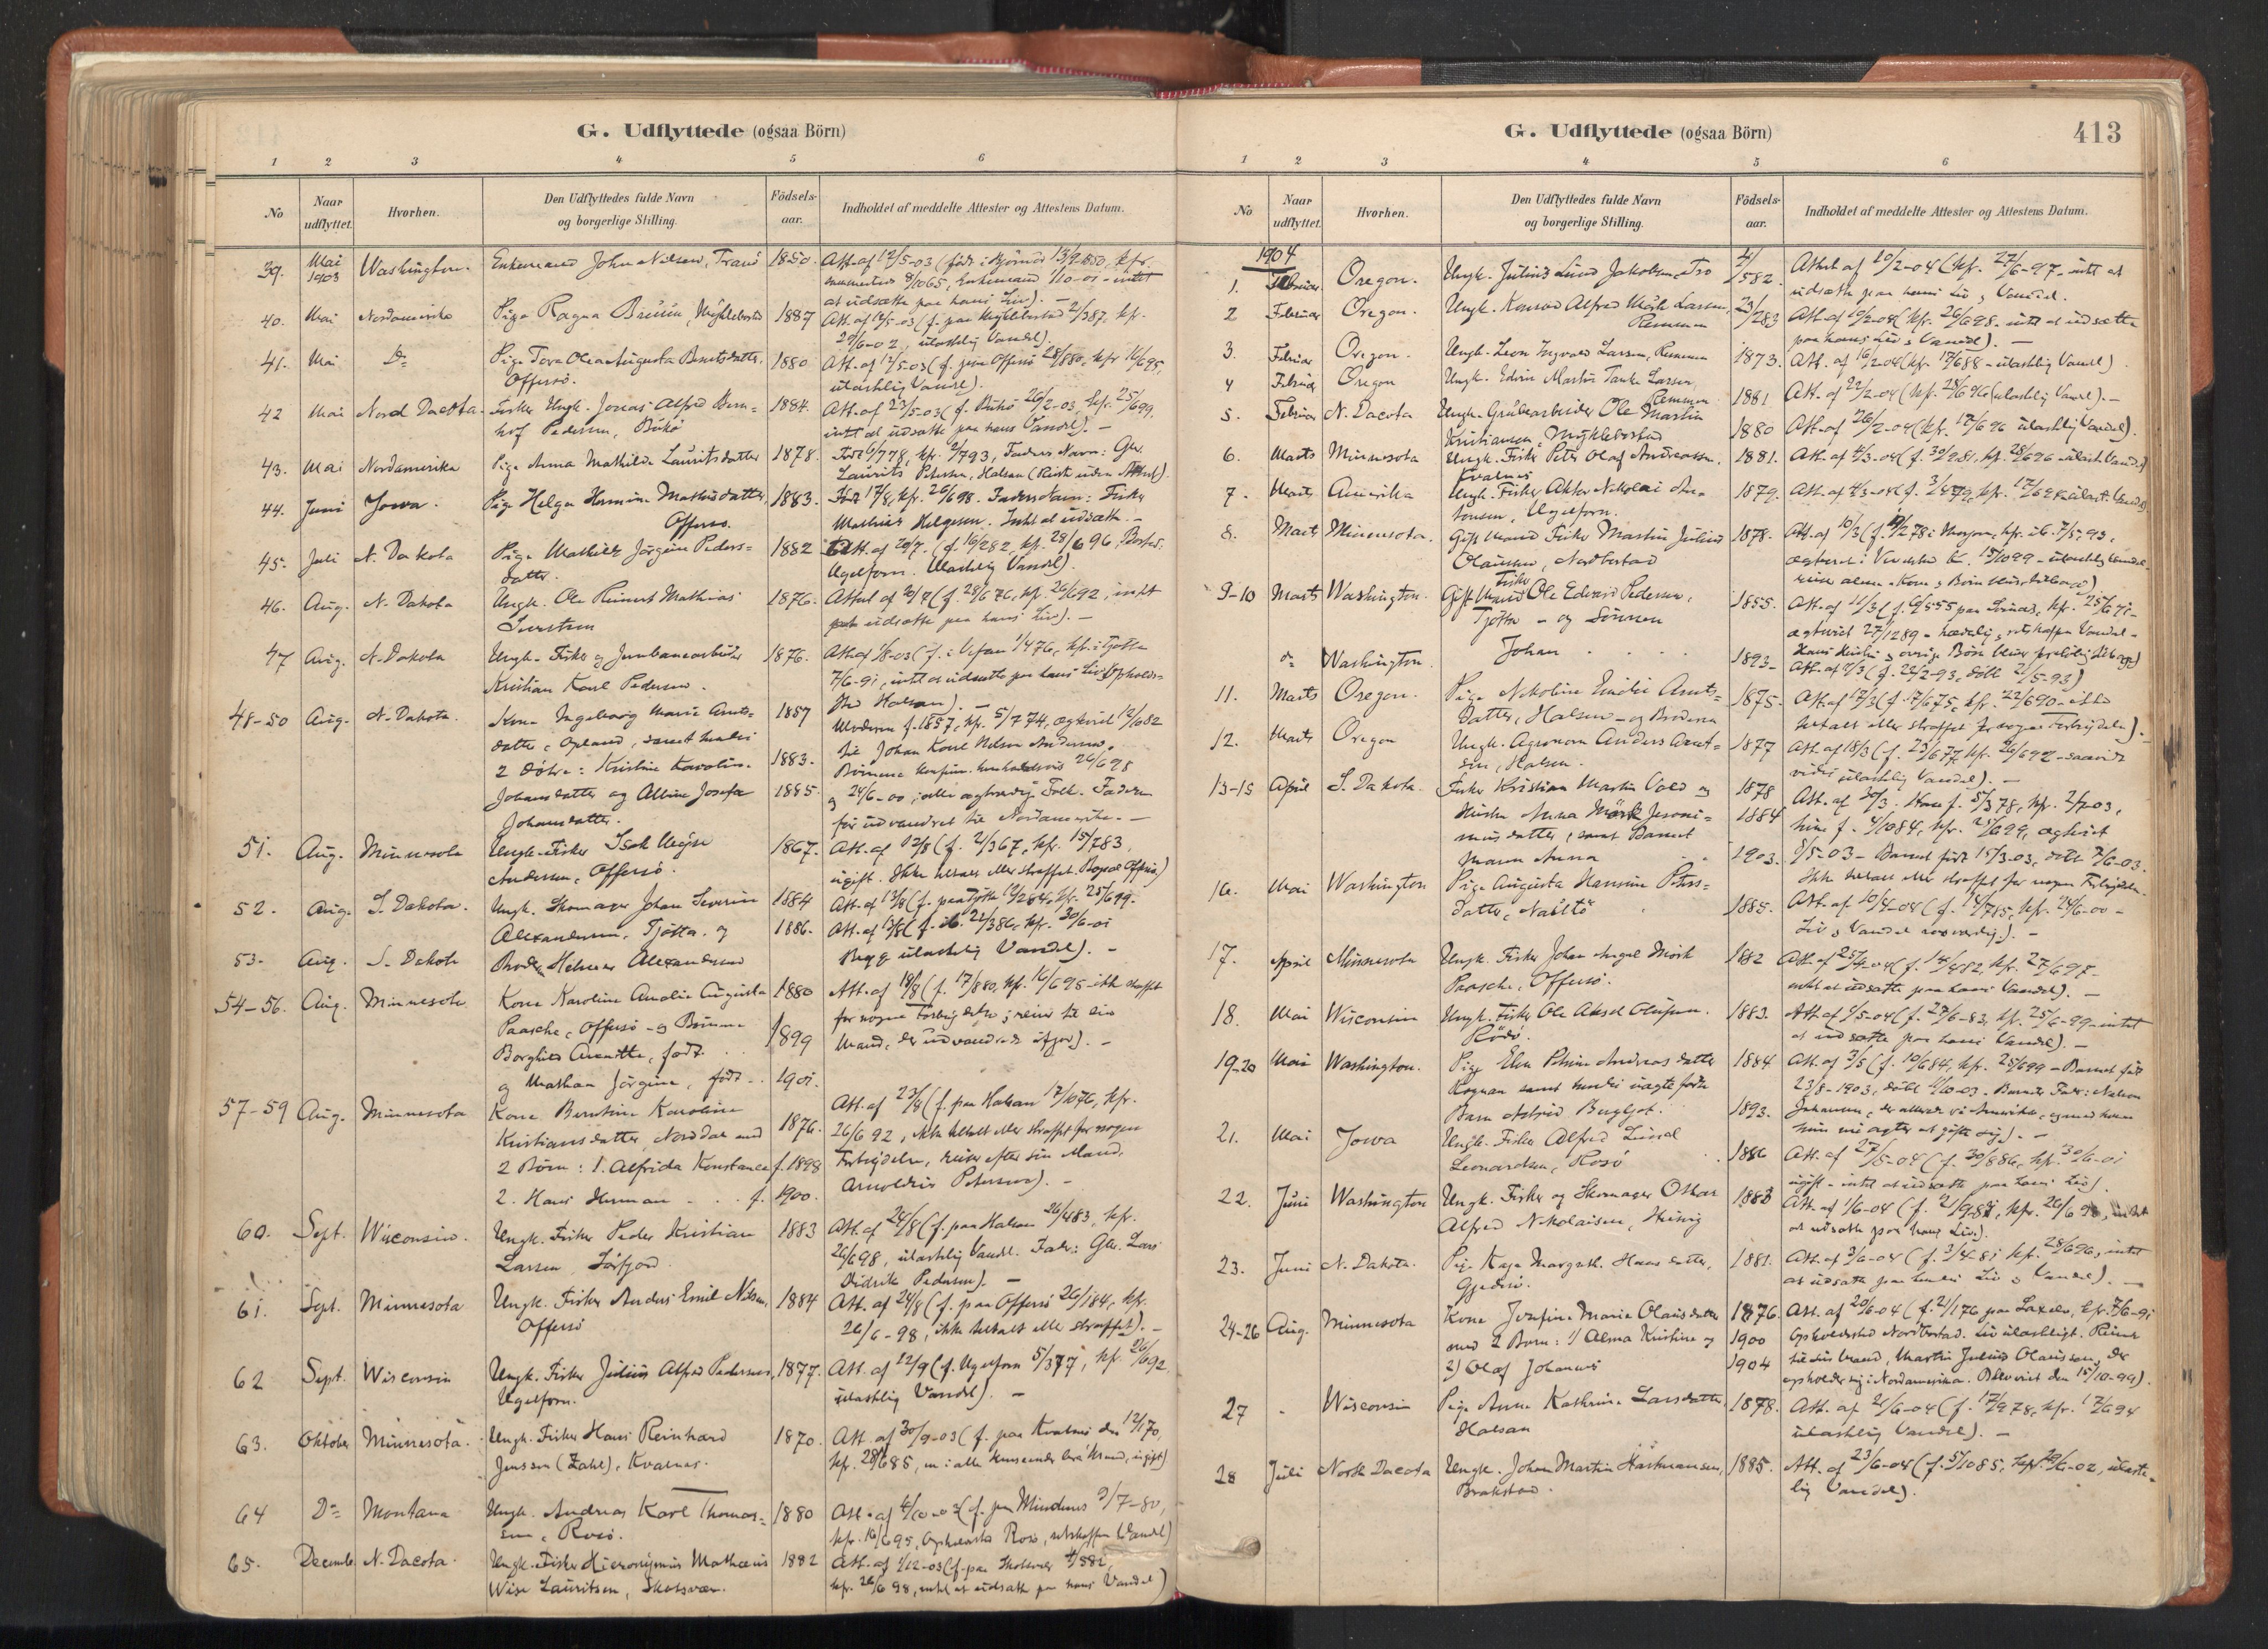 G. Udflyttede (ogsaa Börn)
1 2 3 4 5 6
No
Naar udflyttet.
Hvorhen.
Den Udflyttedes fulde Navn og borgerlige Stilling.
Födsels- aar.
Indholdet af meddelte Attester og Attestens Datum.
39. Mai 1903 Washington. Enkemand John Nilsen, Tranö 1850. Att. af 12/5-03 (født i 13/9 850, kfr.
Enkemand 1/10-01 - intet
at udsætte paa hans Liv). -
40. Mai Nordamerika Pige Ragna Bruun, Myklebostad 1887 Att. af (f. paa Myklebostad 2/387, kfr.
29/6-02, ulastelig Vandel).
41. Mai Do Pige Tora Olea Augusta Berntsdatter, 1880 Att. af 12/5-03 (f. paa Offersö 28/880, kfr 16/695,
Offersö. ulastelig Vandel).
42 Mai Nord Dacota. Fisker Ungk. Jonas Alfred Bern= 1884. Att. af 23/5-03 (f. kfr. 25/699.
hof Pedersen, intet at udsætte paa hans Vandel). -
43. Mai Nordamerika Pige Anna Mathilde Lauritsdatter 1878. Født 6/778, kfr. 2/793, Faders Navn: Gbr.
Laurits Petersen, Halsan (Reist uden Attest).
44. Juni Jowa. Pige Helga Hermine Mathisdatter, 1883. Født 17/8, kfr. 26/698. Faders Navn: Fisker
Offersö. Mathias Helgesen. Intet at udsætte. -
45. Juli N. Dakota Pige Mathilde Jörgine Peders= 1882 Att. af 20/7. (f. 16/282, kfr. 28/696, Bosted
datter. Ugelforn. Ulastelig Vandel).
46. Aug. N. Dakota Ungk. Ole Reinert Mathias 1876. Attest af 20/7 (f. 28/676, kfr. 26/692, intet
Sivertsen at udsætte paa hans Liv). -
47 Aug. N. Dakota Ungk. Fisker og Jernbanearbeider 1876. Att. af 1/8-03 (f. i Vefsen 1/476, kfr. i Tjötta
Kristian Karl Pedersen. 7/6-91, intet at udsætte paa hans Liv, Opholds=
sted Halsan). -
48-50 Aug. N. Dakota. Kone Ingeborg Marie Arnts= 1857 Moderen f. 1857, kfr. 5/774, ægteviet
datter, Opland, samt hendes til Johan Karl Nilsen Andersen.
2 Døtre: Kristine Karoline 1883. Börnene konfirm. henholdsvis 26/698
Johansdatter og Albine Josefa 1885. og 24/6-00; alle agtværdige Folk. Faderen
Johansdatter. før udvandret til Nordamerika. -
51. Aug. Minnesota Ungk. Fisker Isak Meyer 1867. Att. af 12/8 (f. 2/367, kfr. 15/783,
Andersen, Offersö. ugift. Ikke tiltalt eller straffet. Bopæl Offersö)
52. Aug. S. Dakota. Ungk. Skomager Johan Severin 1884 Att. af 13/8 (f. paa Tjötta 12/284, kfr. 25/699.
Alexandersen, Tjötta. og 1886. Att. af 13/8 (f. ib. 21/386, kfr. 30/6-01
53. Aug. S. Dakota Broder Helmer Alexandersen Begge ulastelig Vandel). -
54-56. Aug. Minnesota Kone Karoline Amalie Augusta 1880 Att. af 18/8 (f. 17/880, kfr. 16/695 - ikke straffet
Paasche, Offersö - og Börnene for nogen Forbrydelse; reiser til sin
Borghild Annette, født 1899 Mand, der udvandrede ifjor). -
og Mathea Jörgine, født 1901.
57-59 Aug. Minnesota Kone Berntine Karoline Att. af 23/8 (f. paa Halsan 12/676, kfr.
Kristiansdatter, Norddal med 1876. 26/692, ikke tiltalt eller straffet for nogen
2 Börn: 1. Alfrida Konstance f. 1898 Forbrydelse, reiser efter sin Mand,
2. Hans Herman f. 1900. Arnoldus Petersen). -
60. Sept. Wisconsin. Ungk. Fisker Peder Kristian 1883 Att. af 24/8 (f. paa Halsan 26/483, kfr.
Larsen, Sörfjord 26/698, ulastelig Vandel. Fader: Gbr. Lars
Didrik Pedersen). -
61. Sept. Minnesota Ungk. Fisker Anders Emil Nilsen, 1884 Att. af 24/8 (f. paa Offersö 26/184, kfr.
Offersö 26/6-98, ikke tiltalt eller straffet). -
62 Sept. Wisconsin Ungk. Fisker Julius Alfred Pedersen, 1877. Att. af 12/9 (f. Ugelforn 5/377, kfr. 26/692,
Ugelforn. ulastelig Vandel). -
63. Oktober Minnesota. Ungk. Fisker Hans Reinhard 1870. Att. af 30/9-03 (f. paa Kvalnes den 12/170,
Jensen (Zahl), Kvalnes. kfr. 28/685, en i alle Henseender bra' Mand, ugift)
64 Do Montana Ungk. Andreas Karl Thomas= 1880 Att. af 4/10-03 (f. paa Mindnes 9/7-80,
sen, Rosö. kfr. 16/695, Opholdssted Rosö, retskaffen Vandel)
65. Decemb N. Dacota. Ungk. Fisker Hieronymus Mathæus 1882 Att. af 1/12-03 (f. paa 4/882,
Wise Lauritsen, Skotsvær. kfr. 26/698, intet at udsætte paa hans Vandel)
G. Udflyttede (ogsaa Börn)
413
1 2 3 4 5 6
No
Naar udflyttet.
Hvorhen.
Den Udflyttedes fulde Navn og borgerlige Stilling.
Födsels- aar.
Indholdet af meddelte Attester og Attestens Datum.
1904
1. Februar Oregon. Ungk. Julius Lund Jakobsen, Tro 4/582. Attest af 10/2-04 (kfr. 27/6-97 - intet at
udsætte paa hans Liv & Vandel.
2 Februar Oregon. Ungk. Konrad Alfred Mørk Larsen, 23/283 Att. af 10/2-04 (kfr. 26/698 - intet at udsætte
Remmen paa hans Liv & Vandel). -
3. Februar Oregon. Ungk. Leon Ingvald Larsen, Remmen 1873. Att. af 16/2-04 (kfr. 17/688 - ulastelig Vandel)
4 Februar Oregon Ungk. Edvin Martin Tanke Larsen, Remmen 1881 Att. af 22/2-04 (kfr. 28/696 (ulastelig Vandel). -
5. Februar N. Dacota Ungk. Grubearbeider Ole Martin 1880 Att. af 26/2-04 (kfr. ulastelig Vandel).
Kristiansen, Myklebostad
6. Marts Minnesota Ungk. Fisker Peter Olaf Andreassen. 1881. Att. af 4/3-04 (f. 30/981, kfr. 28/696 - ulast. Vandel)
Kvalnes
7. Marts Amerika Ungk. Fisker Aktor Nikolai An= 1879. Att. af 4/3-04 (f. 3/479, kfr. ulast. Vandel)
tonsen, Ugelforn.
8. Marts Minnesota. Gift Mand Fisker Martin Julius 1878. Att. af 10/3 (f. i Mosjøen, kfr. ib. 7/5-93,
Olaussen, Nordbostad ægteviet i K. 15/1099 - ulastelig Vandel -
reiser alene. Kone & Börn bliver tilbage)
9-10 Marts Washington. Gift Mand Fisker Ole Edvard Pedersen, 1855. Att. af 11/3 (f. 6/555 paa kfr. 25/671.
Tjötta - og Sönnen ægteviet 27/1289 - hæderlig & retskaffen Vandel -
Hans Hustru & øvrige Börn bliver foreløbig tilbage)
do Washington. Johan 1893- Att. af 11/3 (f. 22/2-93, døbt 2/5-93)
11. Marts Oregon. Pige Nikoline Emilie Arnts= 1875. Att. af 17/3 (f. 17/675, kfr. 22/690 - ikke
datter, Halsan - og Broderen tiltalt eller straffet for nogen Forbrydelse).
12. Marts Oregon Ungk. Agronom Anders Arnt= 1877 Att. af 18/3 (f. 23/677, kfr. 26/692 - saavidt
sen, Halsan. vides ulastelig Vandel). -
13-15 April S. Dakota. Fisker Kristian Martin Vold og 1878 Att. af 30/3. Han f. 5/378, kfr. 2/793,
Hustru Anna Mørk Jeroni= 1884 hun f. 4/1084, kfr. 25/699, ægteviet
musdatter, samt Barnet
Maren Anna 1903. 8/5-03 - Barnet født 15/3-03, døbt 7/6-03.
Ikke tiltalt eller straffet for nogen Forbrydelse
16. Mai Washington Pige Augusta Hansine Peters= 1885. Att. af 10/4-04 (f. 14/785, kfr. 24/6-00 -
datter, Liv & Vandel rosværdig). -
17. April Minnesota Ungk. Fisker Johan Angel Mørk 1882 Att. af 25/4-04 (f. 14/482, kfr. 27/697 -
Paasche, Offersö. intet at udsætte paa hans Vandel). -
18. Mai Wisconsin Ungk. Fisker Ole Aksel Olufsen. 1883. Att. af 1/5-04 (f. 27/6-83, kfr. 25/6-99 - intet
Rödö. at udsætte paa hans Vandel). -
19-20 Mai Washington. Pige Elen Petrine Andreasdatter 1884 Att. af 3/5 (f. 10/684, kfr. 25/699 - Barnet født
Rognan samt hendes uægtefødte 23/8-1903, døbt 4/10-03. Barnets Fader: Nelson
Barn Astrid Bergljot. 1893. Johansen, der allerede er i Amerika, og med hvem
hun nu agter at gifte sig). -
21. Mai Jowa Ungk. Fisker Alfred Lund 1886 Att. af 27/5-04 (f. 30/886, kfr. 30/6-01
Leonardsen, Rosö ugift - intet at udsætte paa hans Liv).
22. Juni Washington Ungk. Fisker og Skomager Othar 1883 Att. af 1/6-04 (f. kfr. 26/698, intet
Alfred Nikolaisen, Husvig at udsætte paa hans Liv).
23. Juni N. Dakota. Pige Kaja Margreth. Hansdatter, 1881. Att. af 3/6-04 (f. 3/4-81 kfr. 28/696, intet
Gjedö. at udsætte paa hendes Liv & Vandel). -
24-26 Aug. Minnesota Kone Josefine Marie Olausdatter 1876. Att. af 20/6-04 (f. 2/176 paa kfr. 7/6-91
med 2 Börn: 1/ Alma Kristine og 1900 Opholdssted Nordbostad. Liv ulasteligt. Reiser
2) Olaf Johannes 1904 til sin Mand, Martin Julius Olaussen, der
opholder sig i Nordamerika. Blev viet den 15/10-99).
27 - Wisconsin Pige Anne Kathrine Larsdatter, 1878. Att. af 21/6-04 (f. 17/978, kfr. 17/694
Halsan ulastelig Vandel). -
28 Juli North Dacota Ungk. Johan Martin Hartmansen, 1885. Att. af 23/6-04 (f. 5/1085, kfr. 29/6-02, ulaste-
Brakstad. lig Vandel).